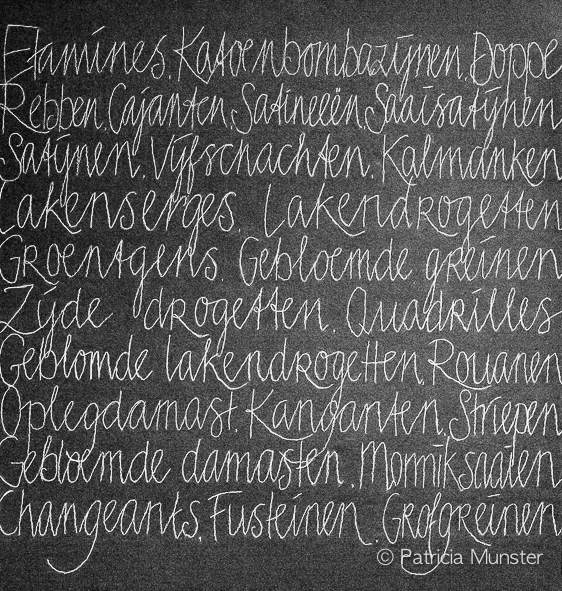 Etamines. Katoenbombazijnen. Doppe
Rebben. Cajanten. Satineeën. Saaisatijnen
Satijnen. Vijfschachten. Kalmanken
Lakenserges. Lakendrogetten
Groentgens. Gebloemde greinen
Zijde drogetten. Quadrilles
Geblomde lakendrogetten. Rouanen
Oplegdamast. Kanganten. Striepen
Gebloemde damasten.
Changeants. Fusteinen. Grofgreinen
© Patricia Munster